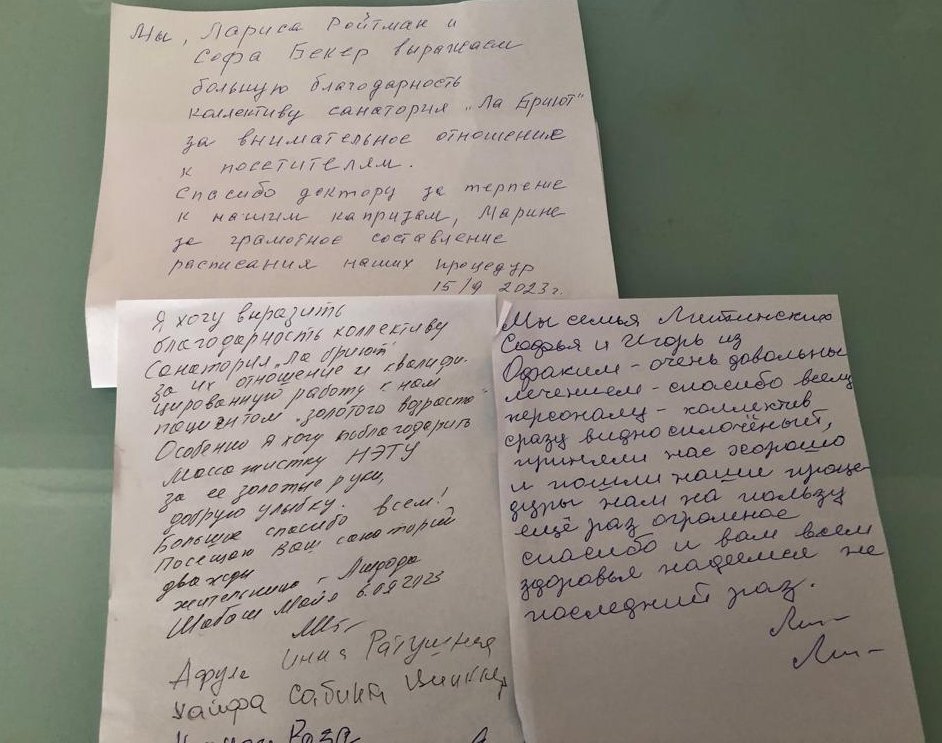 Мы, Лариса Ройтман и
Софа Бекер выражаем
большую благодарность
коллективу санатория „Ла Бриют"
за внимательное отношение
к посетителям.
Спасибо доктору за терпение
к нашим капризам, Марине
за грамотное составление
расписания наших процедур
15/9 2023г.
Я хочу выразить
благодарность коллективу
Санатория „Ла бриют"
за их отношение и квалифи-
цированную работу к нам
пациентом „золотого возраста"
Особенно я хочу поблагодарить
массажистку НЭТУ
за ее золотые руки,
добрую улыбку.
Большие спасибо всем!
Посещаю Ваш санаторий
дважды
жительница г.
Шабаш Майя 6.09 2023
Афула Инна Ратушная
Хайфа Сабина
Роза
Мы семья Литинских
Софья и Игорь из
Офаким - очень довольны
лечением - спасибо всему
персоналу - коллектив
сразу видно сплочёный,
приняли нас хорошо
и пошли наши проце-
дуры нам на пользу
ещё раз огромное
спасибо и вам всем
здоровья надеемся не
последний раз.